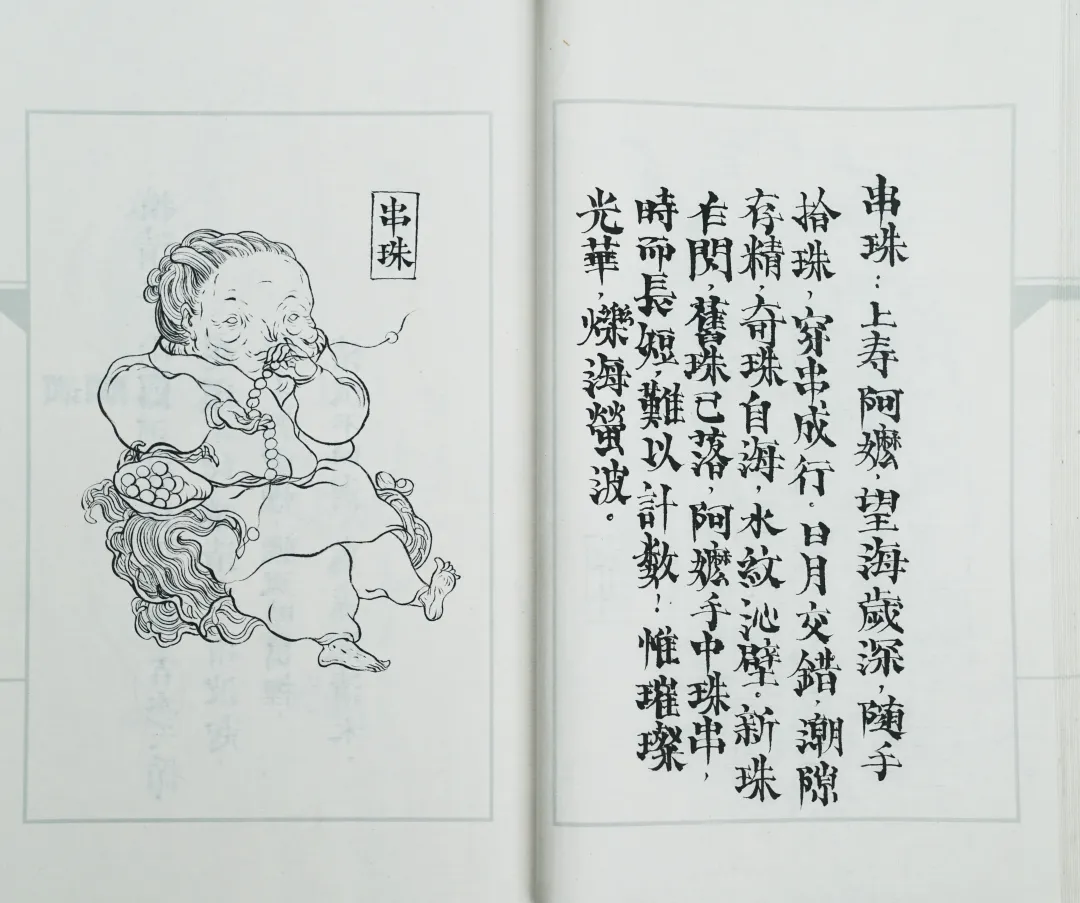 串珠：上寿阿嬤，望海歲深，随手
拾珠，穿串成行。日月交錯，潮隙
存精，奇珠自海，水紋沁壁。新珠
閃，舊珠已落，阿嬤手中珠串，
時而長短，難以計數！惟璀璨
光華，爍海螢波。
串珠